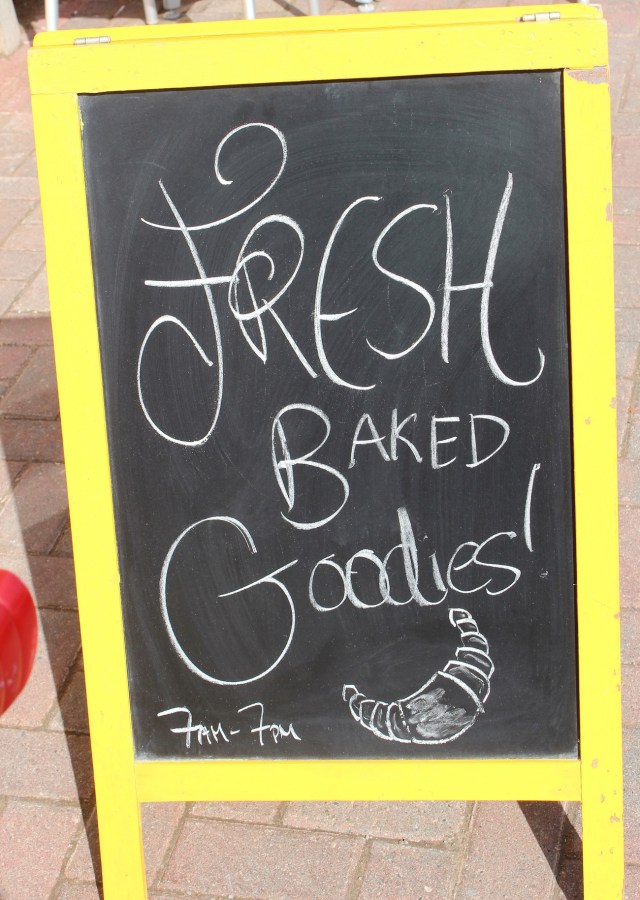 FRESH
BAKED
Goodies!
7AM-7PM